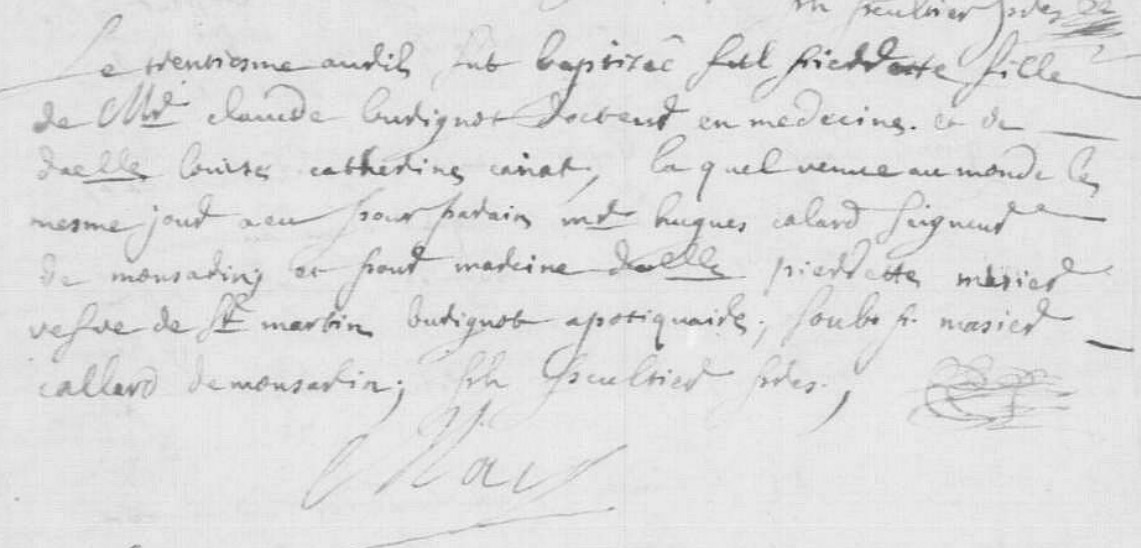 pbr
Le trentiesme apvril fut baptizée fut pierrette fille
de Mr claude burignot docteur en medecine. et de
daelle louise catherine canat, laquel venue au monde le
mesme jour a eu pour parain mr hugues calard seigneur
de monsarin, et pour mareine daelle pierrette masier
vefve de Sr martin burignot apotiquaire; soubs P. masier
callard demonsarin; pbr
May